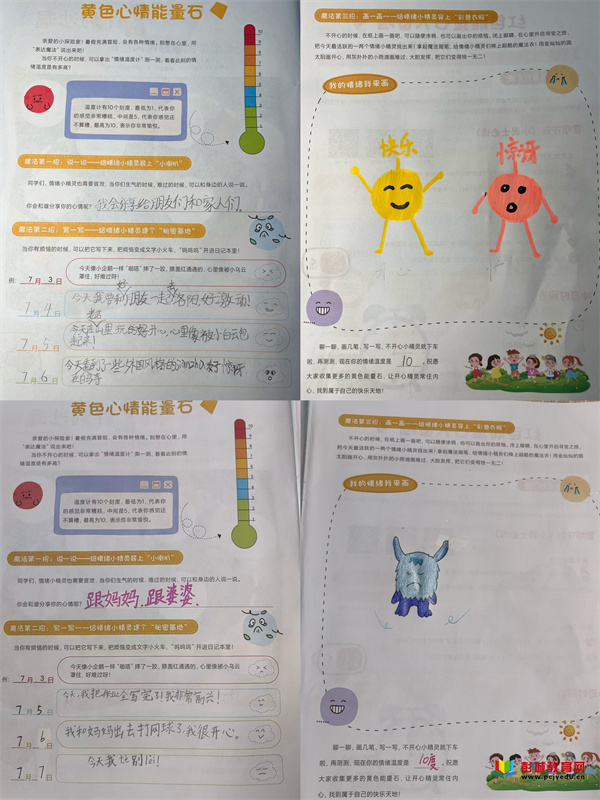 黄色心情能量石
亲爱的小探险家!暑假充满冒险,会有各种情绪,别憋在心里,用
“表达魔法”说出来吧!
当你不开心的时候,可以拿出“情绪温度计”测一测,看看此刻的情
绪温度是有多高?
温度计有10个刻度,最低为1,代表你
的感觉非常糟糕,中间是5,代表感觉还
不算糟,最高为10,表示你非常愉悦。
魔法第一招:说一说——给情绪小精灵装上“小喇叭”
同学们,情绪小精灵也需要宣泄,当你们生气的时候,难过的时候,可以和身边的人说一说。
你会和谁分享你的心情呢?我会分享给朋友们和家人们。
魔法第二招:写一写——给情绪小精灵建个“秘密基地”
当你有烦恼的时候,可以把它写下来,把烦恼变成文字小火车,“呜呜呜”开进日记本里!
例: 7月3日
今天像小企鹅一样“啪嗒”摔了一跤,膝盖红通通的,心里像被小乌云
罩住,好难过呀!
7月4日
7月5日
起来!
7月6日
魔法第三招:画一画——给情绪小精灵穿上“彩色衣服”
不开心的时候,在纸上画一画吧,可以随便涂鸦,也可以画出你的烦恼,闭上眼睛,在心里开启寻宝之旅,
把今天最活跃的一两个情绪小精灵找出来!拿起魔法画笔,给情绪小精灵们换上超酷的魔法衣!用金灿灿的圆
太阳画开心,用灰扑扑的小雨滴画难过,大胆发挥,把它们变得独一无二!
我的情绪我来画
快乐
惊讶
聊一聊,画几笔,写一写,不开心小精灵就下车
啦,再测测,现在你的情绪温度是 10 ,祝愿
大家收集更多的黄色能量石,让开心精灵常住内
心,找到属于自己的快乐天地!
黄色心情能量石
亲爱的小探险家!暑假充满冒险,会有各种情绪,别憋在心里,用
“表达魔法”说出来吧!
当你不开心的时候,可以拿出“情绪温度计”测一测,看看此刻的情
绪温度是有多高?
温度计有10个刻度,最低为1,代表你
的感觉非常糟糕,中间是5,代表感觉还
不算糟,最高为10,表示你非常愉悦。
魔法第一招:说一说——给情绪小精灵装上“小喇叭”
同学们,情绪小精灵也需要宣泄,当你们生气的时候,难过的时候,可以和身边的人说一说。
你会和谁分享你的心情呢?跟妈妈,跟婆婆,
魔法第二招:写一写——给情绪小精灵建个“秘密基地”
当你有烦恼的时候,可以把它写下来,把烦恼变成文字小火车,“呜呜呜”开进日记本里!
例: 7月3日
今天像小企鹅一样“啪嗒”摔了一跤,膝盖红通通的,心里像被小乌云
罩住,好难过呀!
7月5日
今天,我把作业全写完了!我非常高兴!
7月6日
我和妈妈出去打网球了,我很开心。
7月7日
今天我
魔法第三招:画一画——给情绪小精灵穿上“彩色衣服”
不开心的时候,在纸上画一画吧,可以随便涂鸦,也可以画出你的烦恼,闭上眼睛,在心里开启寻宝之旅,
把今天最活跃的一两个情绪小精灵找出来!拿起魔法画笔,给情绪小精灵们换上超酷的魔法衣!用金灿灿的圆
太阳画开心,用灰扑扑的小雨滴画难过,大胆发挥,把它们变得独一无二!
我的情绪我来画
聊一聊,画几笔,写一写,不开心小精灵就下车
啦,再测测,现在你的情绪温度是 10度 ,祝愿
大家收集更多的黄色能量石,让开心精灵常住内
心,找到属于自己的快乐天地!
彭城教育网
www.pcjyedu.cn